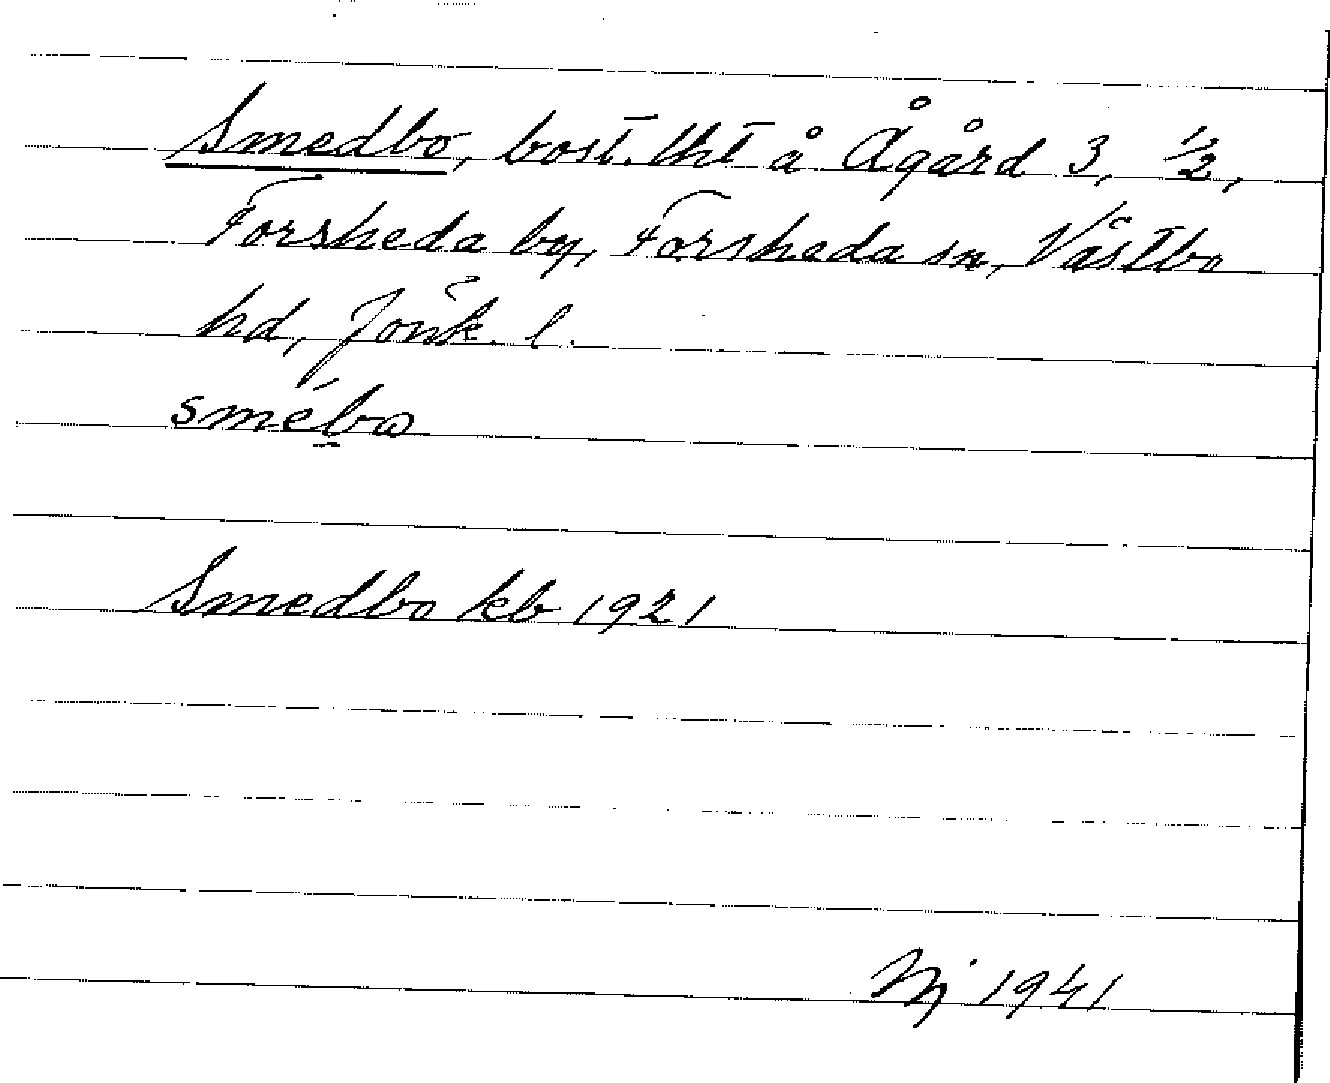 Smedbo, bost. lht å Ågård 3, 1/2,
Forsheda by, Forsheda sn, Västbo
hd, Jönk. l.
smébo
Smedbo kb 1921
1941